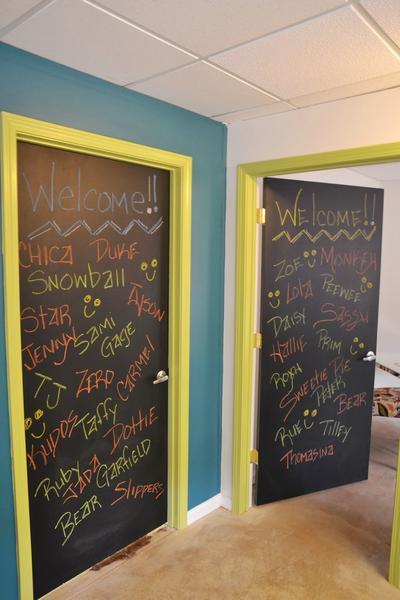 Welcome!!
CHICA DUKE
SNOWBALL
STAR
TYSON
SAMI
JENNY
GAGE
TJ
ZERO
CARMEL
KUDOS
TAFFY
DOTTIE
RUBY
JADA
GARFIELD
BEAR
SLIPPERS
WELCOME!!
ZOE MONKEY
LOLA PEEWEE
DAISY SASSY
HALLIE PRIM
ROXY
SWEETIE PIE
PETER
BEAR
RUE TILLEY
THOMASINA